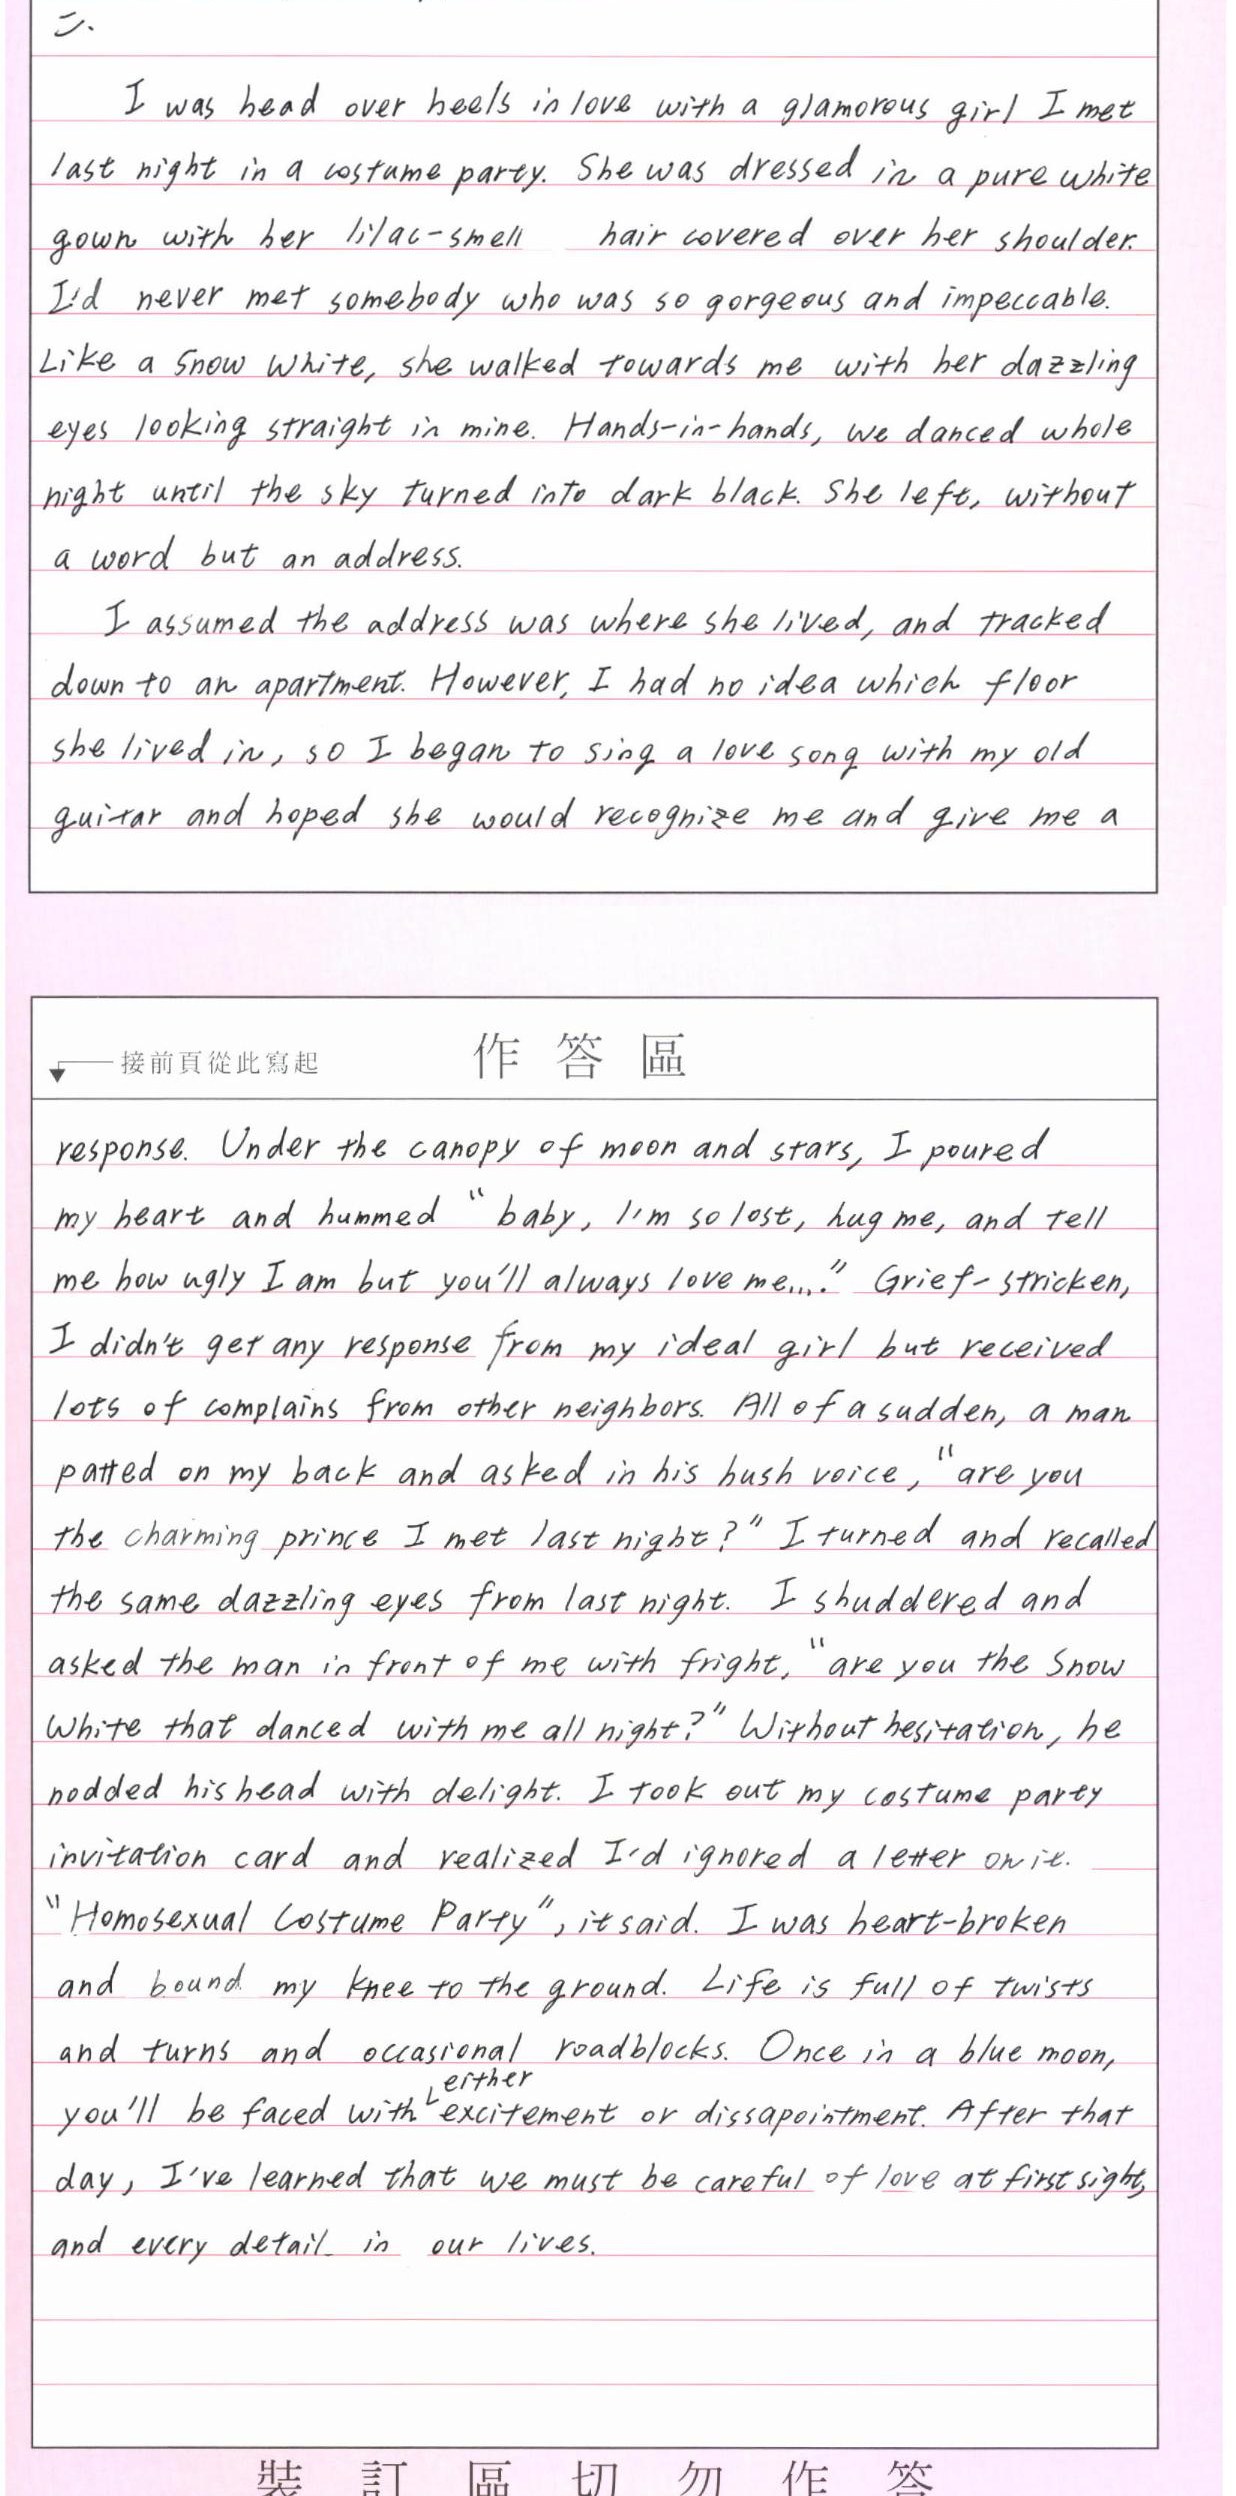 二.
I was head over heels in love with a glamorous girl I met
last night in a costume party. She was dressed in a pure white
gown with her lilac-smell hair covered over her shoulder.
I'd never met somebody who was so gorgeous and impeccable.
Like a Snow White, she walked towards me with her dazzling
eyes looking straight in mine. Hands-in-hands, we danced whole
night until the sky turned into dark black. She left, without
a word but an address.
I assumed the address was where she lived, and tracked
down to an apartment. However, I had no idea which floor
she lived in, so I began to sing a love song with my old
guitar and hoped she would recognize me and give me a
接前頁從此寫起 作答區
response. Under the canopy of moon and stars, I poured
my heart and hummed "baby, I'm so lost, hug me, and tell
me how ugly I am but you'll always love me...." Grief-stricken,
I didn't get any response from my ideal girl but received
lots of complains from other neighbors. All of a sudden, a man
patted on my back and asked in his hush voice, "are you
the charming prince I met last night?" I turned and recalled
the same dazzling eyes from last night. I shuddered and
asked the man in front of me with fright, "are you the Snow
White that danced with me all night?" Without hesitation, he
nodded his head with delight. I took out my costume party
invitation card and realized I'd ignored a letter on it.
"Homosexual Costume Party", it said. I was heart-broken
and bound my knee to the ground. Life is full of twists
and turns and occasional roadblocks. Once in a blue moon,
you'll be faced with either excitement or dissapointment. After that
day, I've learned that we must be careful of love at first sight,
and every detail in our lives.
裝訂區切勿作答